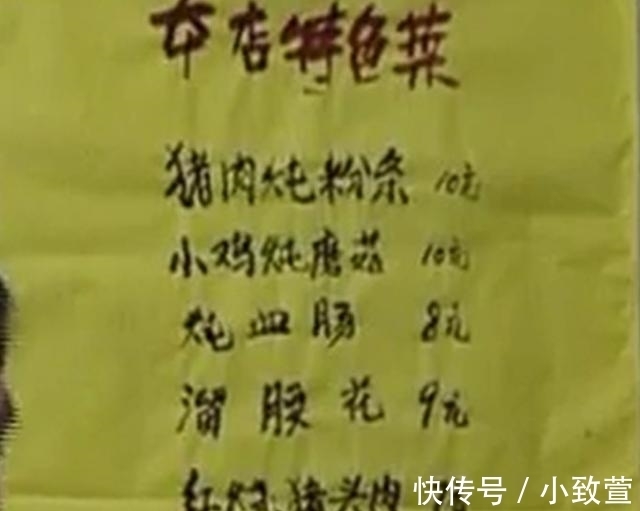 本店特色菜
猪肉炖粉条 10元
小鸡炖磨菇 10元
炖血肠 8元
溜腰花 9元
红烧猪头肉
快传号 / 小致萱